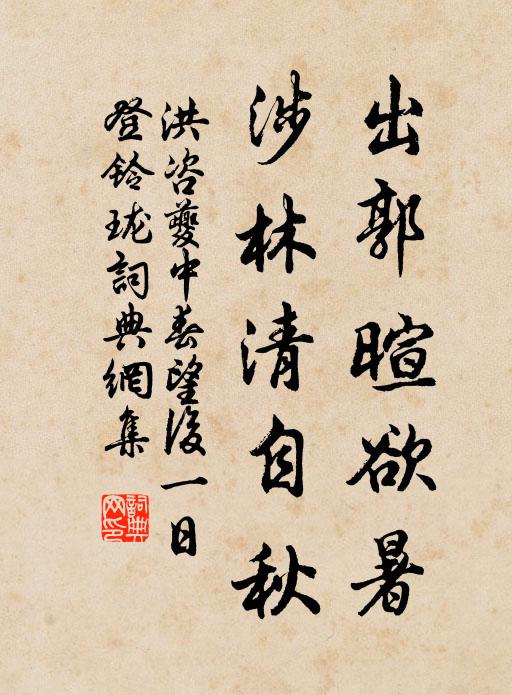 出郭暄欲暑
涉林清自秋
洪咨夔中春望後一日
登鈴瓏詞典網集
詞典
网印